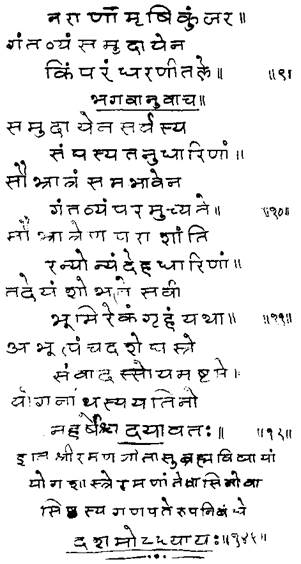 नराणामृषिकुंजर॥
गंतव्यं समुदायेन
किं परं धरणीतले॥ ॥९॥
भगवानुवाच॥
समुदायेन सर्वस्य
संघस्य तनुधारिणां॥
सौभ्रात्रं समभावेन
गंतव्यं परमुच्यते॥ ॥१०॥
सौभ्रात्रेण परा शांति
रन्योन्यं देहधारिणां॥
तदेयं शोभते सर्वा
भूमिरेकं गृहं यथा॥ ॥११॥
अभूत्पंचदशे घस्रे
संवादस्सोयमष्टमे।
योगनाथस्य यतिनो
महर्षेश्च दयावतः॥ ॥१२॥
इति श्रीरमणगीतासु ब्रह्मविद्यायां
योगशास्त्रे रमणांतेवासिनो वा
सिष्ठस्य गणपतेरुपनिबंधे
दशमोऽध्यायः॥१४५॥